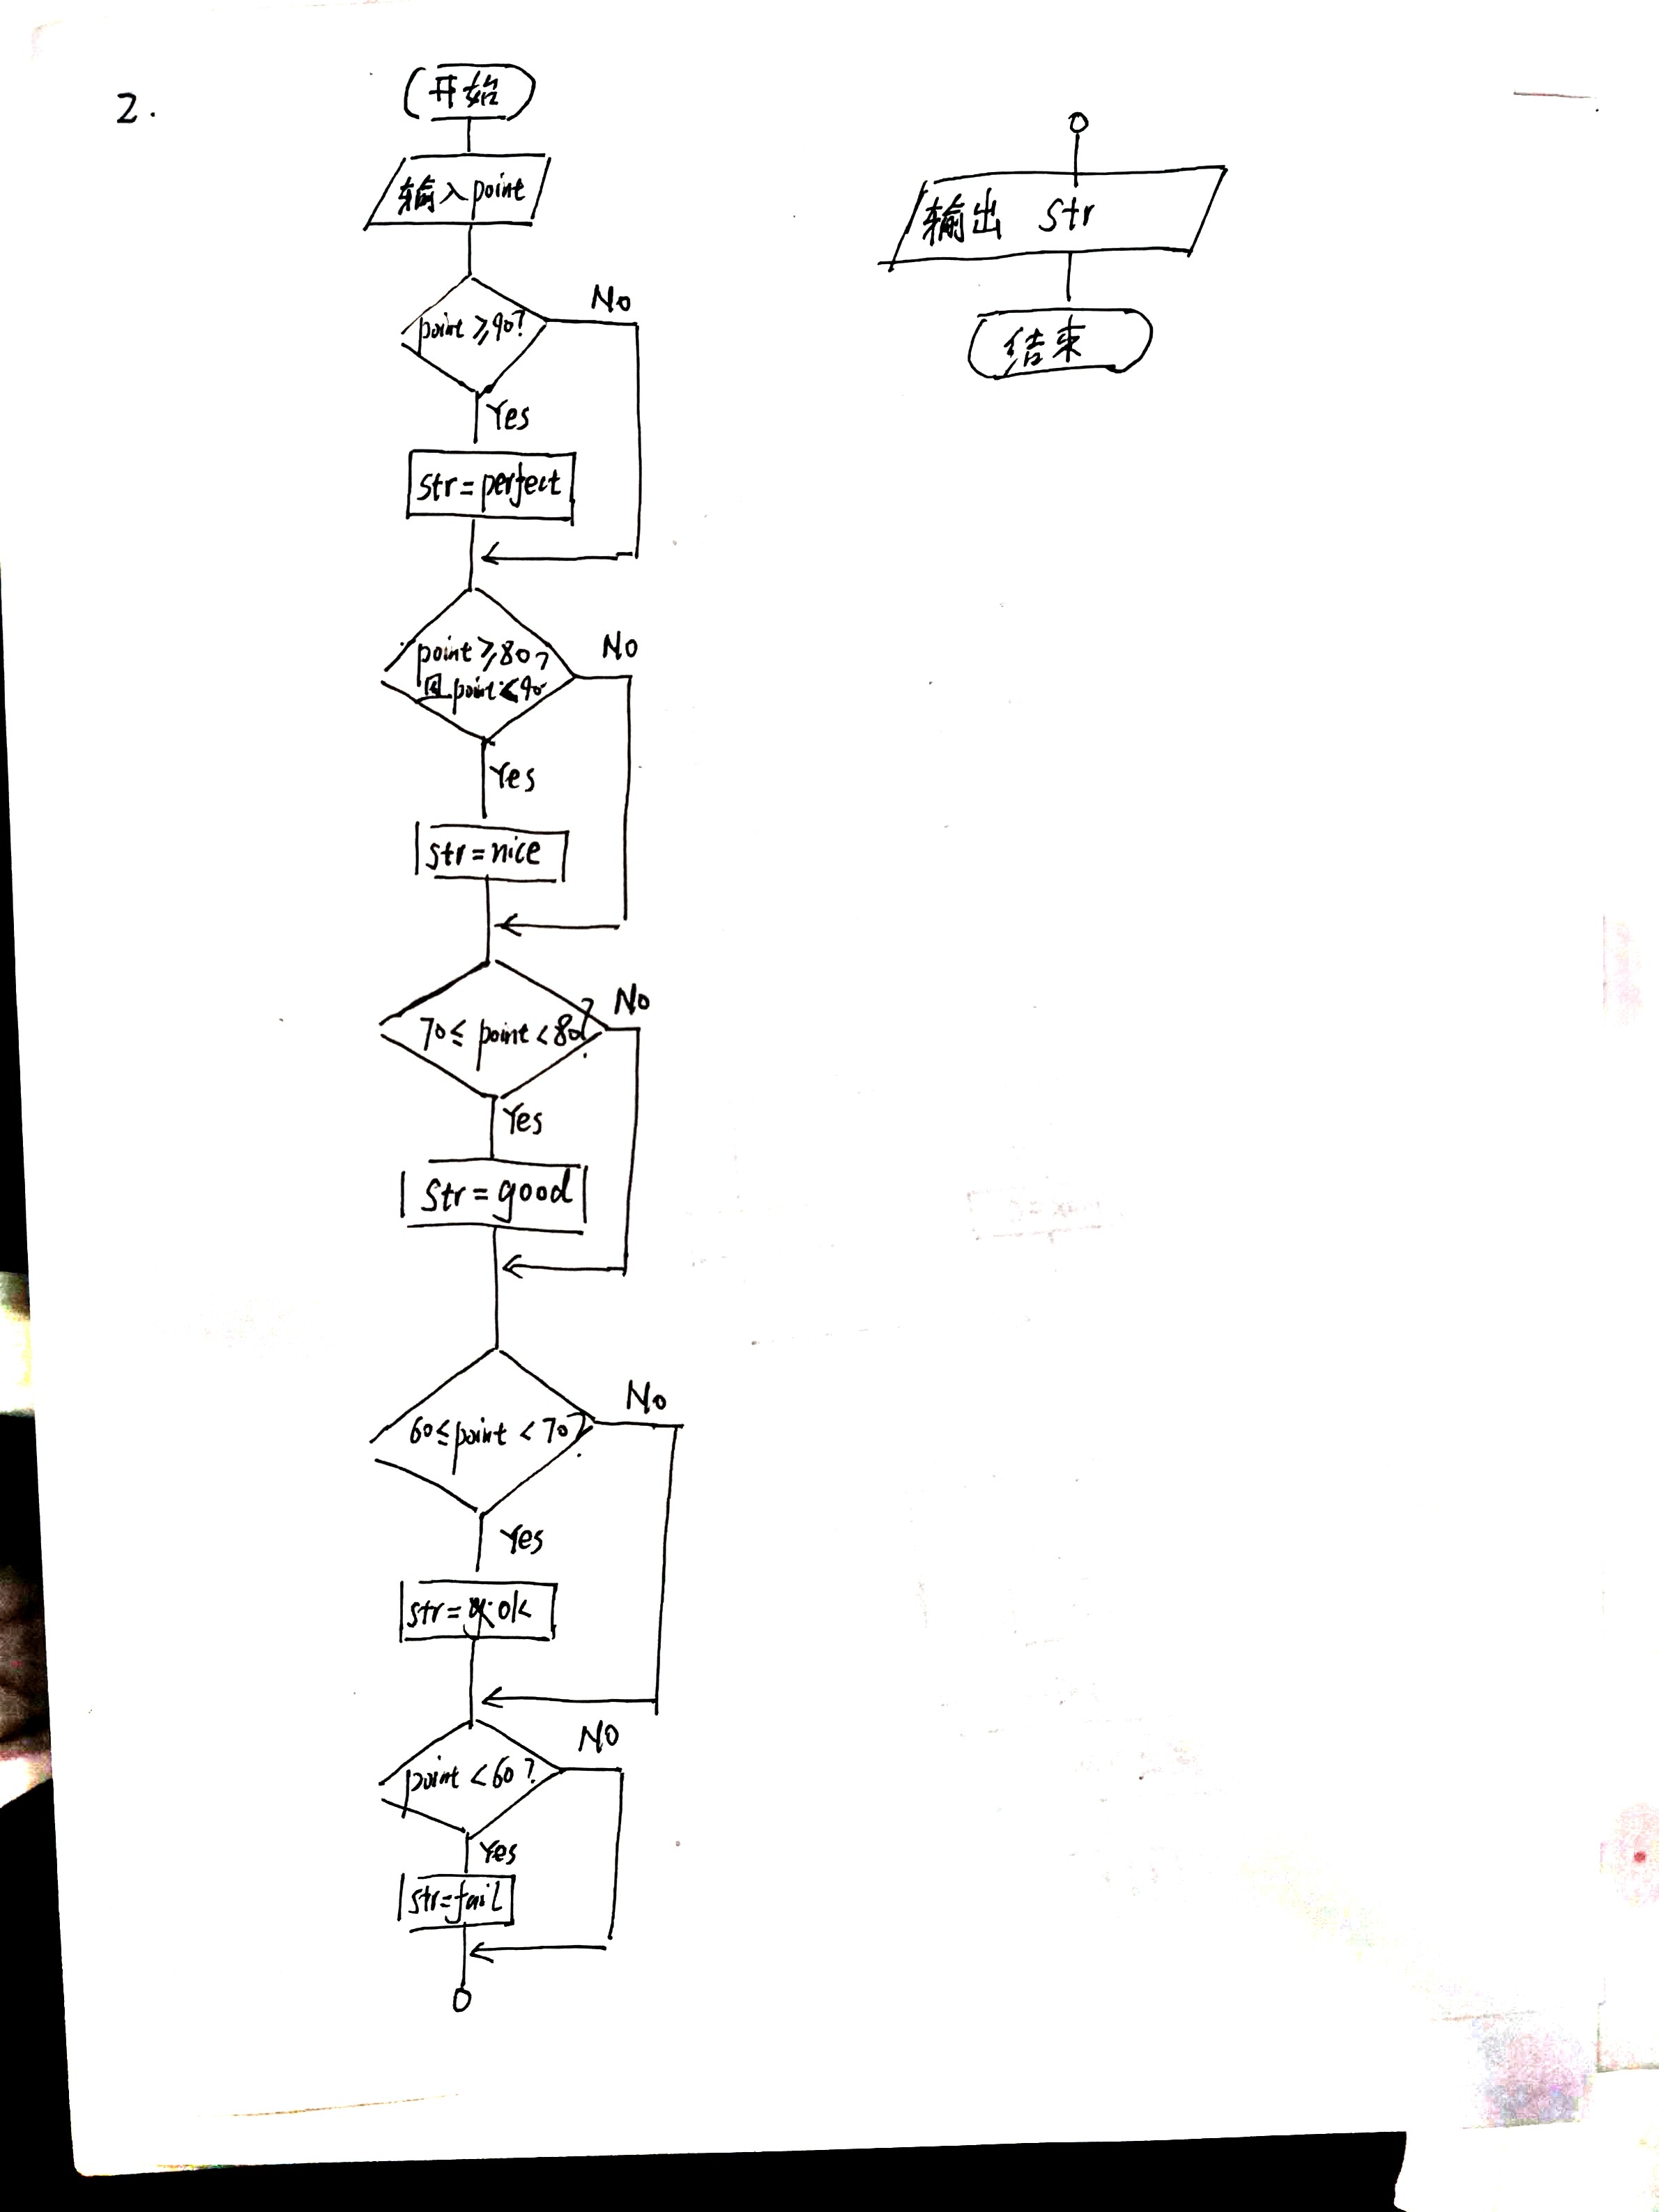 2.
开始
输入point
point≥90?
No
Yes
str=perfect
point≥80?
且point<90
No
Yes
str=nice
70≤point<80?
No
Yes
str=good
60≤point<70?
No
Yes
str=ok
point<60?
No
Yes
str=fail
输出 str
结束